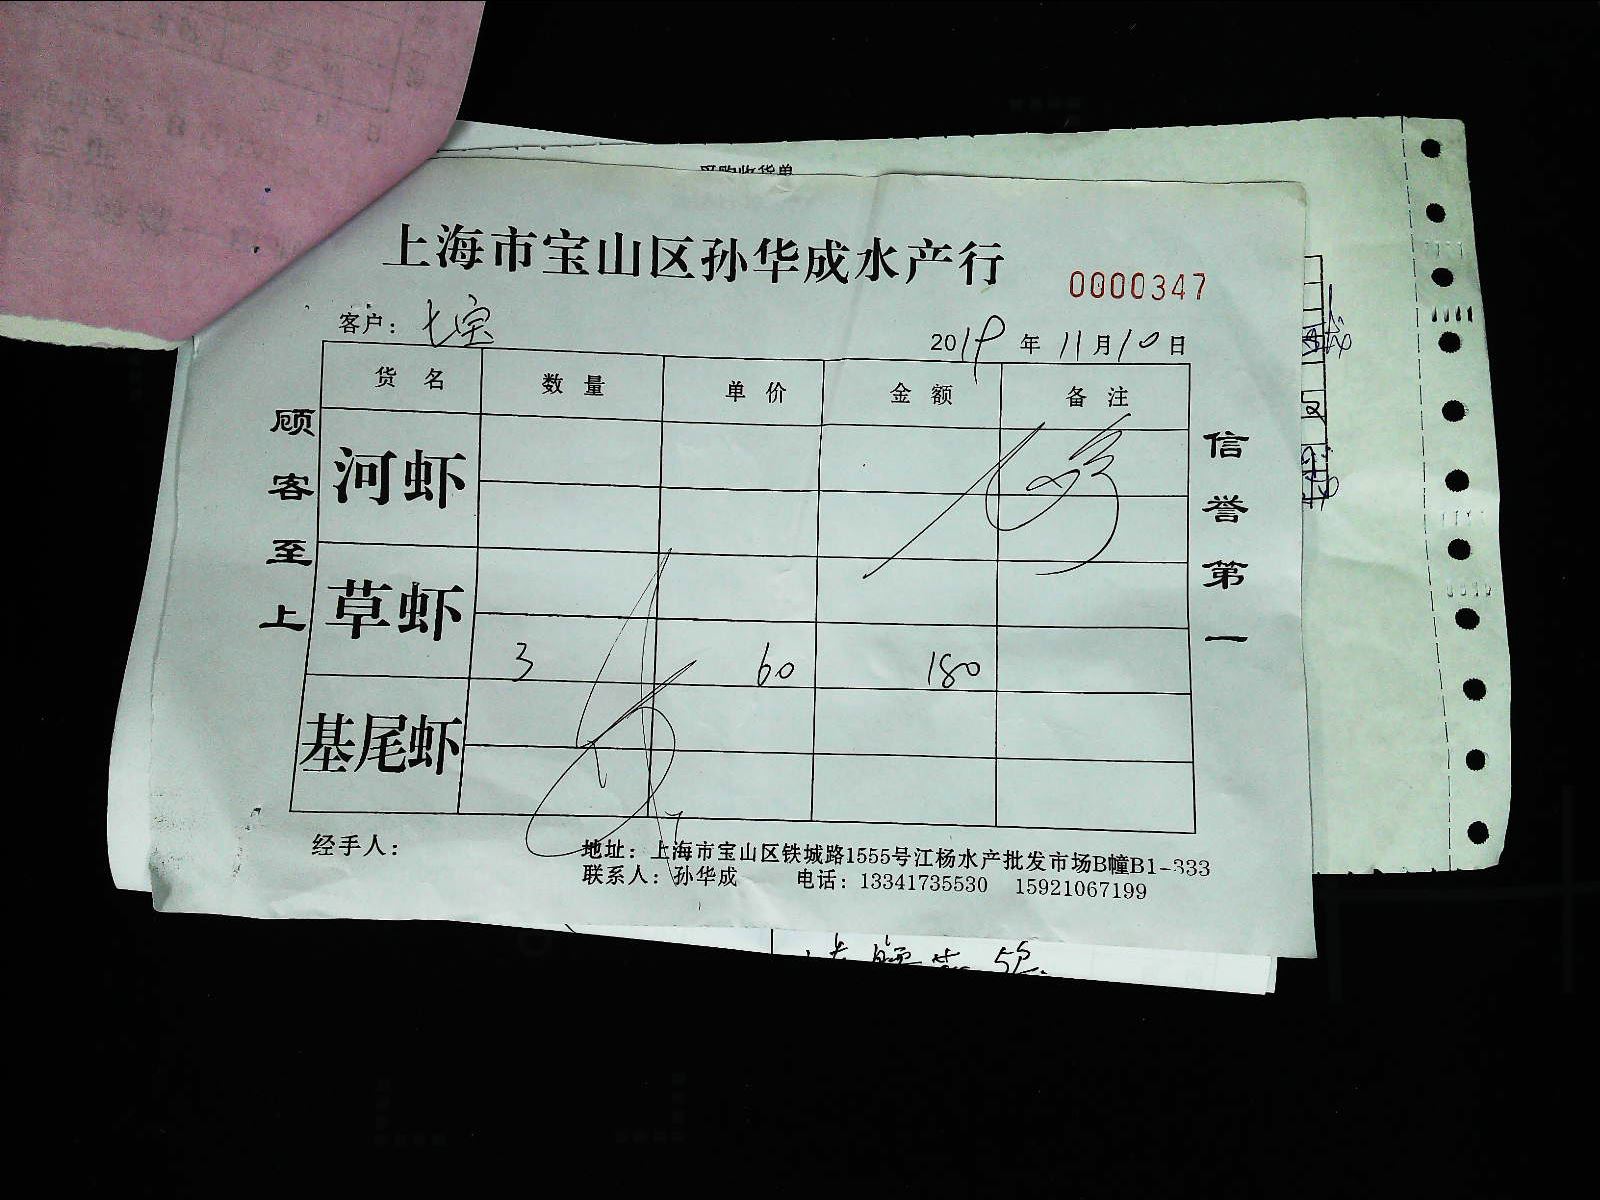 上海市宝山区孙华成水产行
0000347
客户：七宝
2019年11月10日
货名 数量 单价 金额 备注
河虾
草虾
3 60 180
基尾虾
顾客至上
信誉第一
经手人：
地址：上海市宝山区铁城路1555号江杨水产批发市场B幢B1-333
联系人：孙华成 电话：13341735530 15921067199